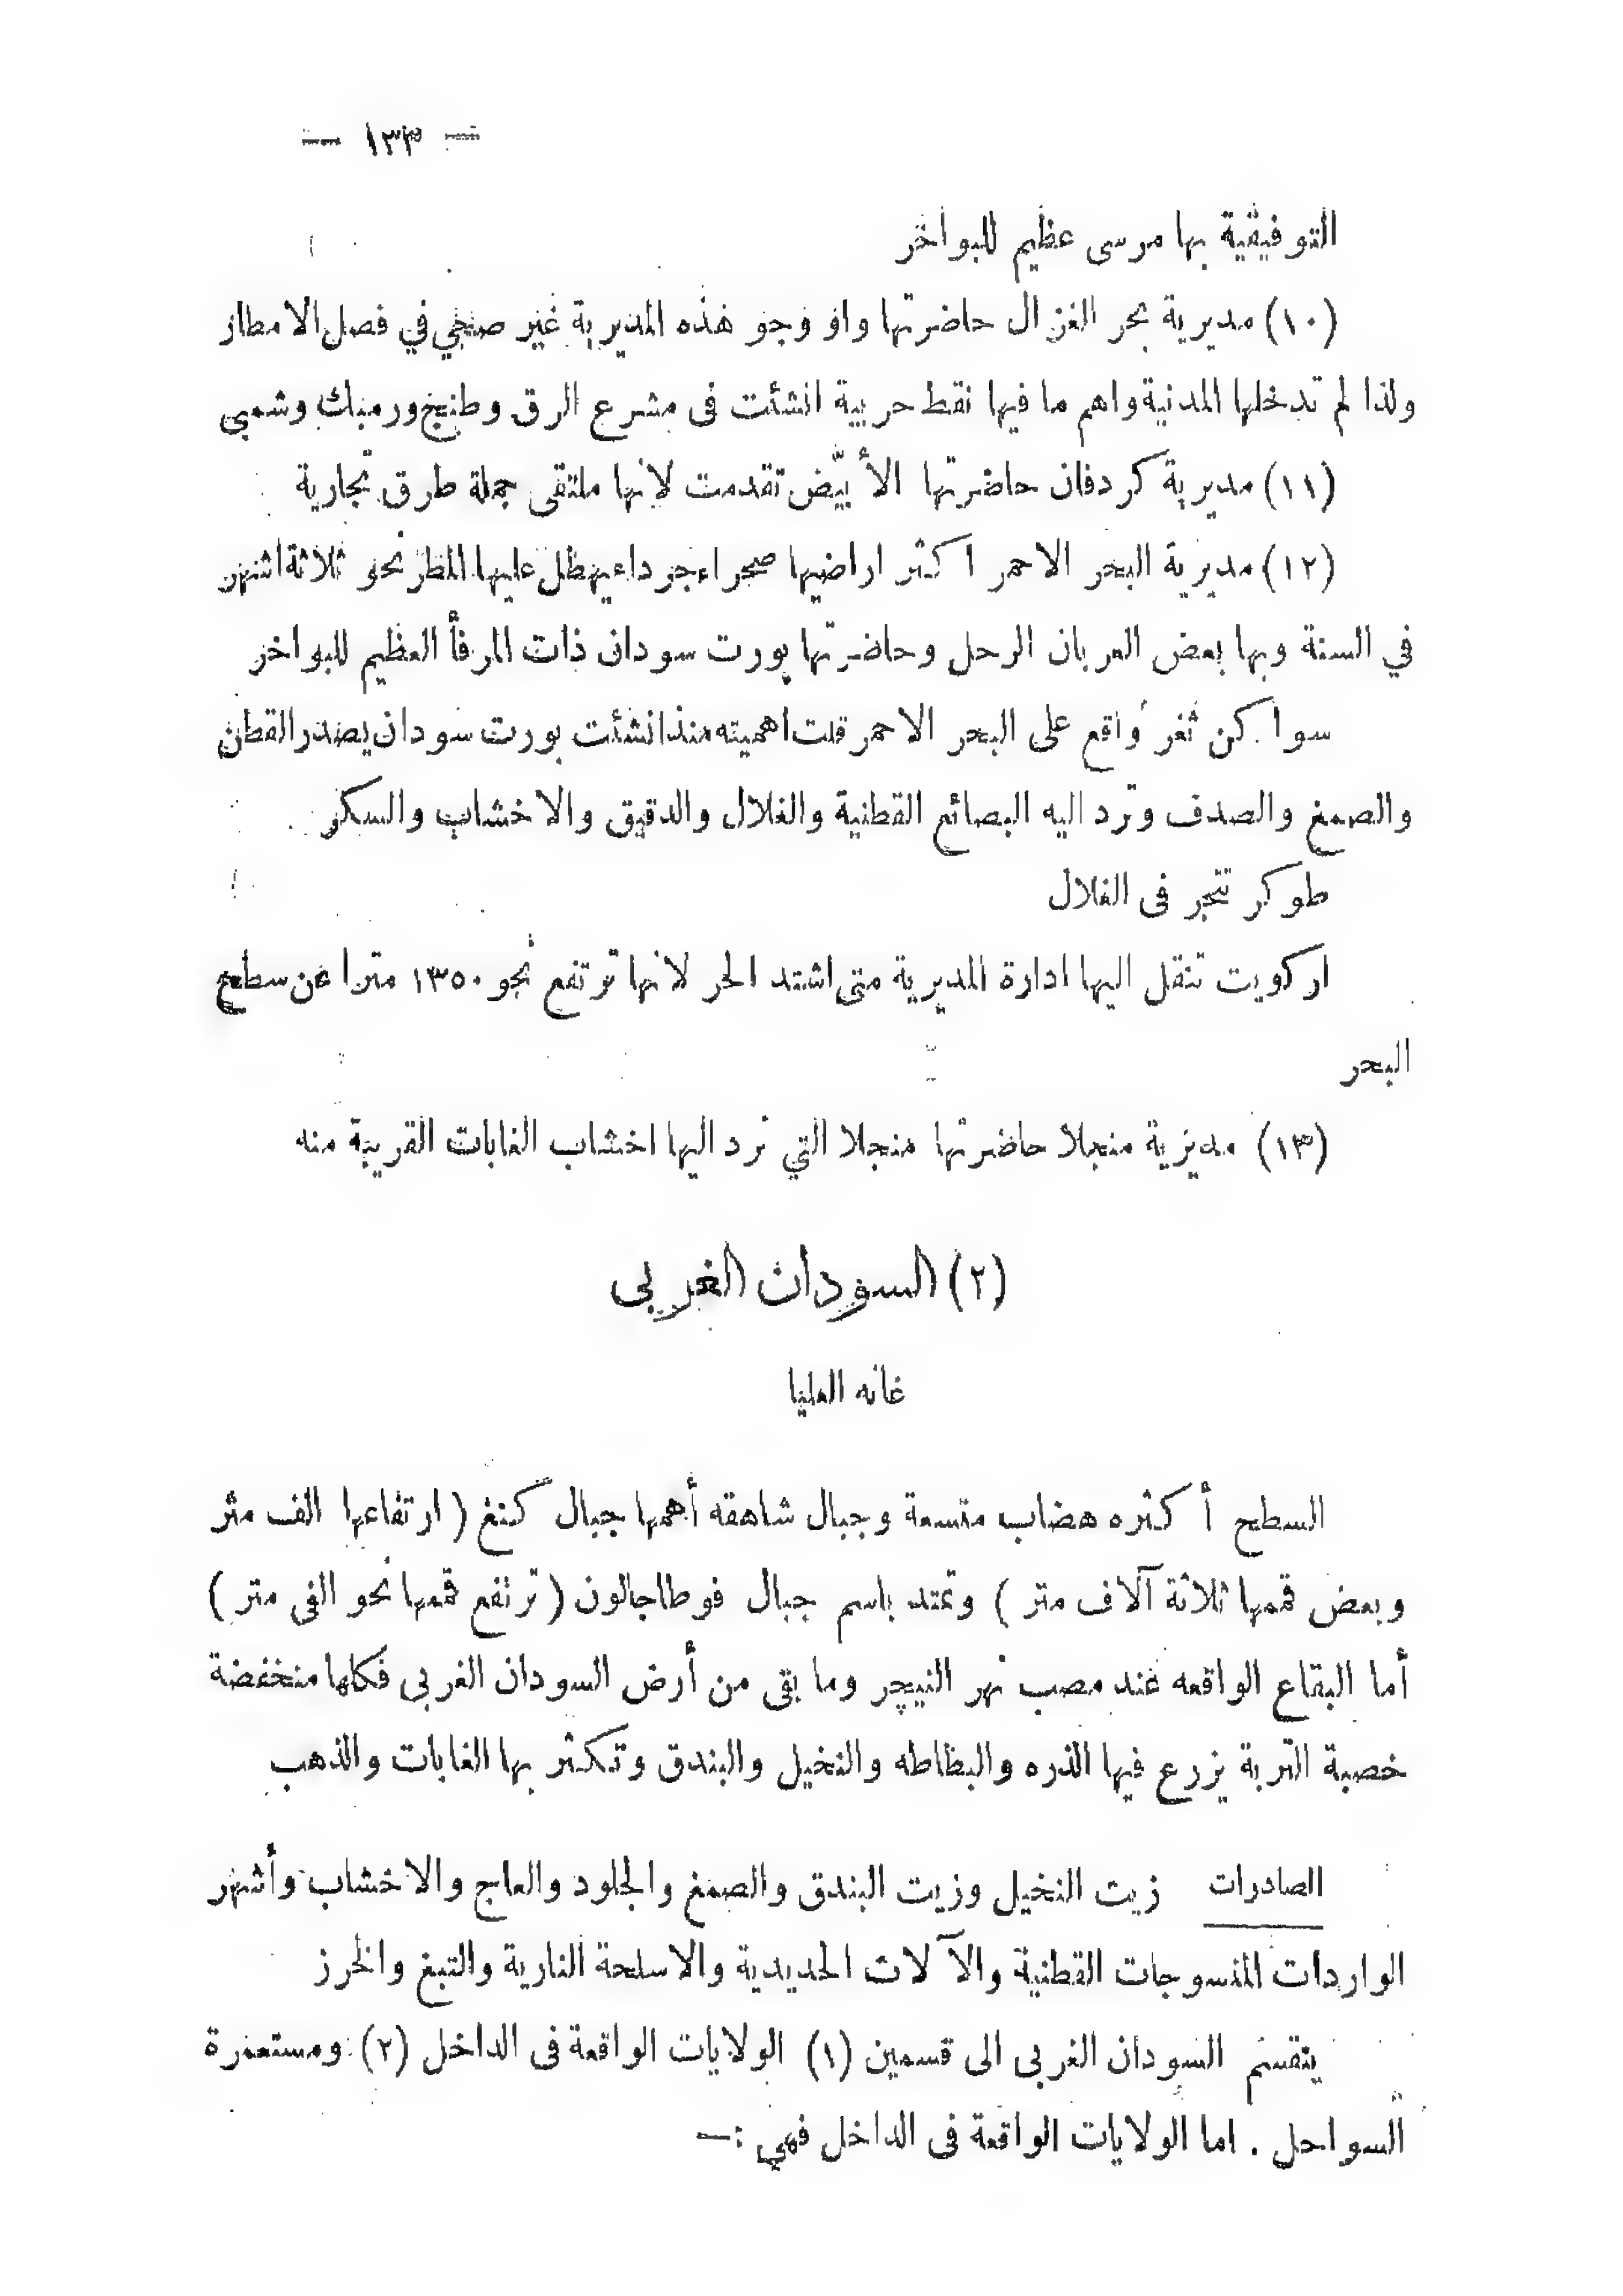 — ١٣٣ —
التوفيقية بها مرسى عظيم للبواخر
(١٠) مديرية بحر الغزال حاضرتها واو وجو هذه المديرية غير صحي في فصل الامطار
ولذا لم تدخلها المدنية واهم ما فيها نقط حربية انشئت فى مشرع الرق وطنج ورمبك وشمبى
(١١) مديرية كردفان حاضرتها الأُبيّض تقدمت لانها ملتقى جملة طرق تجارية
(١٢) مديرية البحر الاحمر اكثر اراضيها صحراء جرداء يهطل عليها المطر نحو ثلاثة اشهر
في السنة وبها بعض العربان الرحل وحاضرتها پورت سودان ذات المرفأ العظيم للبواخر
سواكن ثغر واقع على البحر الاحمر قلت اهميته منذ انشئت بورت سودان يصدر القطن
والصمغ والصدف وترد اليه البضائع القطنية والغلال والدقيق والاخشاب والسكر
طوكر تتجر فى الغلال
اركويت تنقل اليها ادارة المديرية متى اشتد الحر لانها ترتفع نحو ١٣٥٠ مترا عن سطح
البحر
(١٣) مديرية منجلا حاضرتها منجلا التي ترد اليها اخشاب الغابات القريبة منه
(٢) السودان الغربى
غانه العليا
السطح أكثره هضاب متسعة وجبال شاهقه أهمها جبال كنغ (ارتفاعها الف متر
وبعض قممها ثلاثة آلاف متر) وتمتد باسم جبال فوطاجالون (ترتفع قممها نحو الفى متر)
أما البقاع الواقعه عند مصب نهر النيچر وما بقى من أرض السودان الغربى فكلها منخفضة
خصبة التربة يزرع فيها الذره والبطاطه والنخيل والبندق وتكثر بها الغابات والذهب
الصادرات زيت النخيل وزيت البندق والصمغ والجلود والعاج والاخشاب وأشهر
الواردات المنسوجات القطنية والآلات الحديدية والاسلحة النارية والتبغ والخرز
ينقسم السودان الغربى الى قسمين (١) الولايات الواقعة فى الداخل (٢) ومستعمرة
السواحل . اما الولايات الواقعة فى الداخل فهي :—